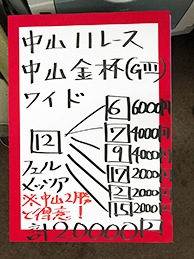 中山11レース
中山金杯(GⅢ)
ワイド
12
6 6000円
7 4000円
9 4000円
17 2000円
2 2000円
15 2000円
フェル
メッツア
※中山2勝
と得意!
計20000円